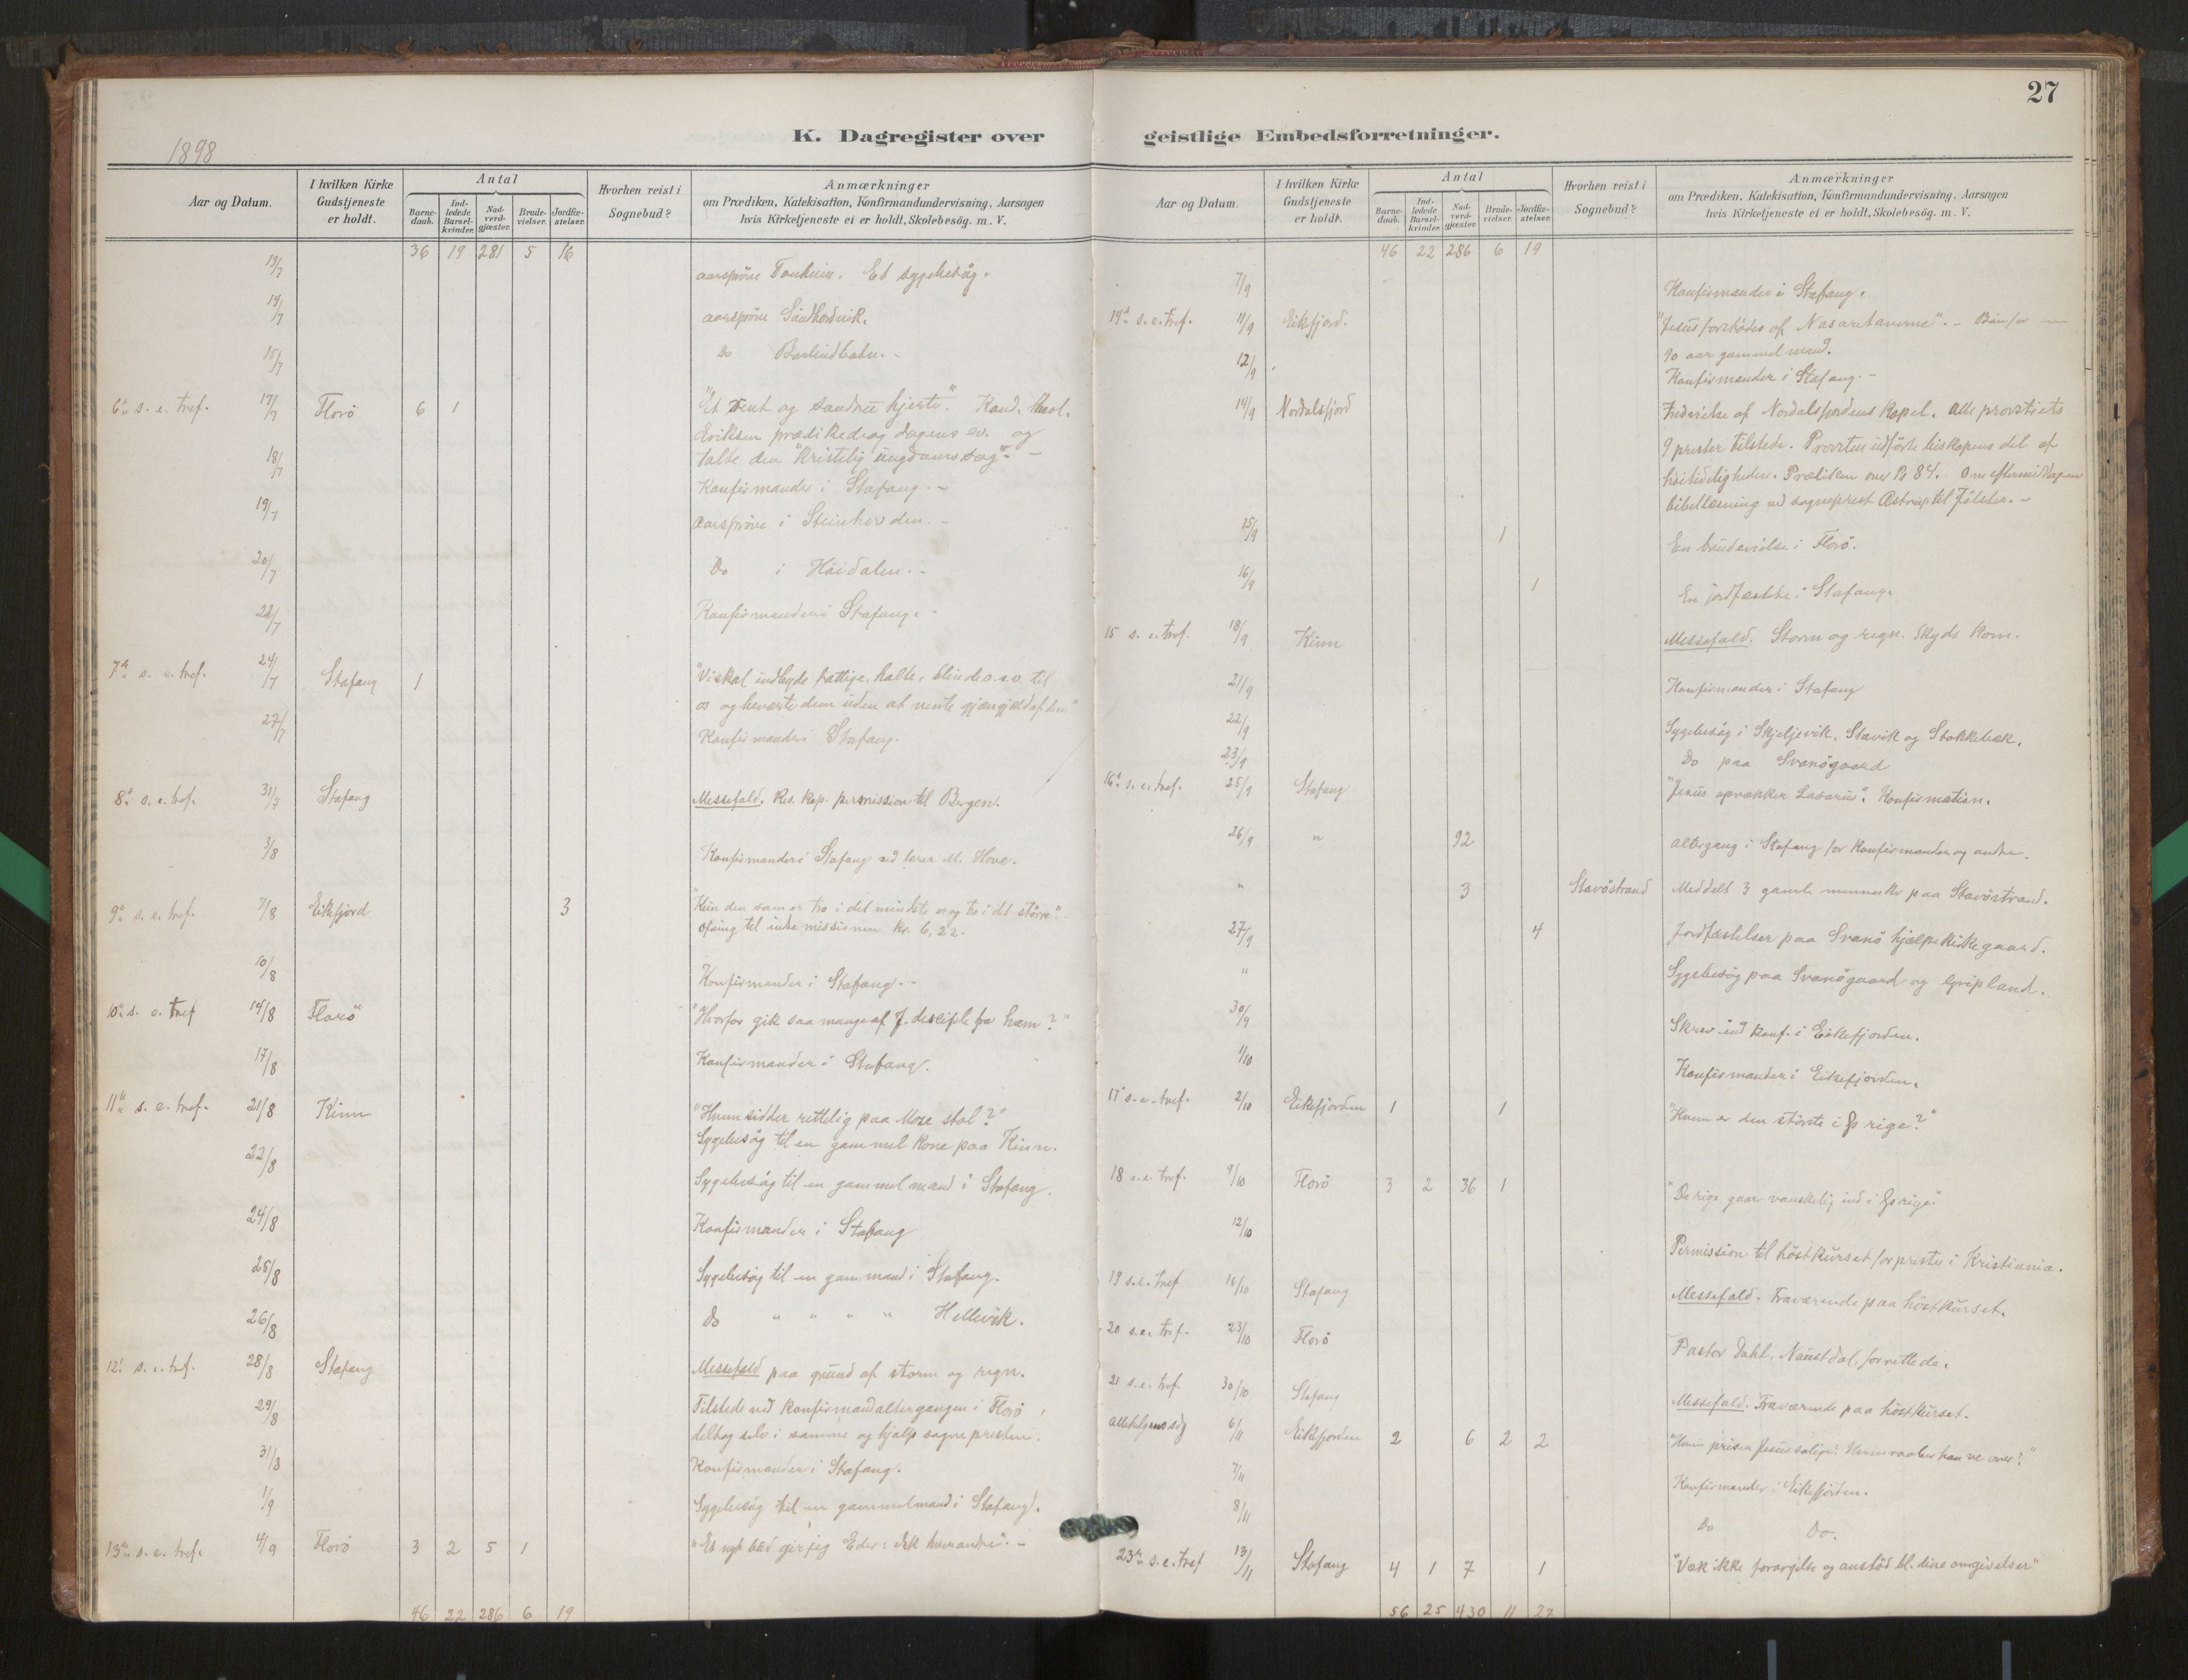 27
K. Dagregister over geistlige Embedsforretninger.
1898
Aar og Datum.
I hvilken Kirke Gudstjeneste er holdt.
Antal
Barne-daab.
Ind-ledede Barsel-kvinder.
Nad-verd-gjæster.
Brude-vielser.
Jordfæ-stelser.
Hvorhen reist i Sognebud?
Anmærkninger
om Prædiken, Katekisation, Konfirmandundervisning, Aarsagen
hvis Kirketjeneste ei er holdt, Skolebesög. m. V.
36 19 281 5 16
13/7 aarspröve Et sygebesög.
14/7 aarspröve
15/7 Do
6te s. e. tref. 17/7 Florö 6 1 "Et rent og sanddru hjerte". Kand. theol.
Eriksen prædikede og dagens ev. og
talte den "kristelig ungdomssag". -
18/7 Konfirmander i Stafang. -
19/7 Aarspröve i Steinhovden. -
20/7 Do i Höidalen. -
22/7 Konfirmander i Stafang. -
7de s. e. tref. 24/7 Stafang 1 "Vi skal indbyde fattige, halte, blinde o.s.v. til
os og beværte dem uden at vente gjengjeld af dem"
27/7 Konfirmander i Stafang.
8de s. e. tref. 31/7 Stafang Messefald. Res. kap. permission til Bergen.
3/8 Konfirmander i Stafang ved lærer M. Hove.
9de s. e. tref. 7/8 Eikefjord 3 "Kun den som er tro i det mindste er og tro i det större". -
ofring til indre missionen Kr. 6,22.
10/8 Konfirmander i Stafang. -
10de s. e. tref 14/8 Florö "Hvorfor gik saa mange af J. disciple fra ham?"
17/8 Konfirmander i Stafang.
11te s. e. tref. 21/8 Kinn "Hvem sidder rettelig paa Mose stol?"
Sygebesög til en gammel kone paa Kinn.
22/8 Sygebesög til en gammel mand i Stafang.
24/8 Konfirmander i Stafang
25/8 Sygebesög til en gam. mand i Stafang.
26/8 Do " " " " Hellevik.
12te s. e. tref. 28/8 Stafang Messefald paa grund af storm og regn.
29/8 Tilstede ved konfirmandaltergangen i Florö,
deltog selv i samme og hjalp sognepresten.
31/8 Konfirmander i Stafang.
1/9 Sygebesög til en gammel mand i Stafang.
13de s. e. tref. 4/9 Florö 3 2 5 1 "Et nyt bud gir jeg Eder: elsk hverandre". -
46 22 286 6 19
Aar og Datum.
I hvilken Kirke Gudstjeneste er holdt.
Antal
Barne-daab.
Ind-ledede Barsel-kvinder.
Nad-verd-gjæster.
Brude-vielser.
Jordfæ-stelser.
Hvorhen reist i Sognebud?
Anmærkninger
om Prædiken, Katekisation, Konfirmandundervisning, Aarsagen
hvis Kirketjeneste ei er holdt, Skolebesög. m. V.
46 22 286 6 19
7/9 Konfirmander i Stafang.
14de s. e. tref. 11/9 Eikefjord. "Jesus forskydes af Nasaretanerne". -
90 aar gammel mand.
12/9 Konfirmander i Stafang. -
14/9 Nordalsfjord Indvielse af Nordalsfjordens kapel. Alle provstiets
9 prester tilstede. Provsten udförte biskopens del af
höitideligheden. Prædiken over Ps 84. Om eftermiddagen
bibellæsning ved sogneprest Astrup til Jölster. -
15/9 1 En brudevielse i Florö.
16/9 1 En jordfæstelse i Stafang.
15 s. e. tref. 18/9 Kinn Messefald. Storm og regn. Skyds kom.
21/9 Konfirmander i Stafang
22/9 Sygebesög i Skjeljevik, Stavik og Stokkebæk.
23/9 Do paa Svanögaard
16de s. e. tref. 25/9 Stafang "Jesus opvækker Lasarus". Konfirmation.
26/9 " 92 Altergang i Stafang for konfirmander og andre.
" 3 Stavöstrand Meddelt 3 gamle mennesker paa Stavöstrand.
27/9 4 Jordfæstelser paa Svanö hjælpekirkegaard.
" Sygebesög paa Svanögaard og Gripland.
30/9 Skrev ind konf. i Eikefjorden.
1/10 Konfirmander i Eikefjorden.
17 s. e. tref. 2/10 Eikefjorden 1 1 "Hvem er den störste i Gs rige?"
18 s. e. tref. 9/10 Florö 3 2 36 1 "De rige gaar vanskelig ind i Gs rige."
12/10 Permission til höstkurset for prester i Kristiania.
19 s. e. tref 16/10 Stafang Messefald. Fraværende paa höstkurset.
20 s. e. tref. 23/10 Florö Pastor Dahl, Naustdal, forrettede.
21 s. e. tref. 30/10 Stafang Messefald. Fraværende paa höstkurset.
Allehelgensdg 6/11 Eikefjorden 2 6 2 2 "Hvem priser Jesus salige? Hvem raaber han ve over?"
7/11 Konfirmander i Eikefjorden.
8/11 Do Do.
23de s. e. tref 13/11 Stafang 4 1 7 1 "Væk ikke forargelse og anstöd bl. dine omgivelser"
56 25 430 11 27